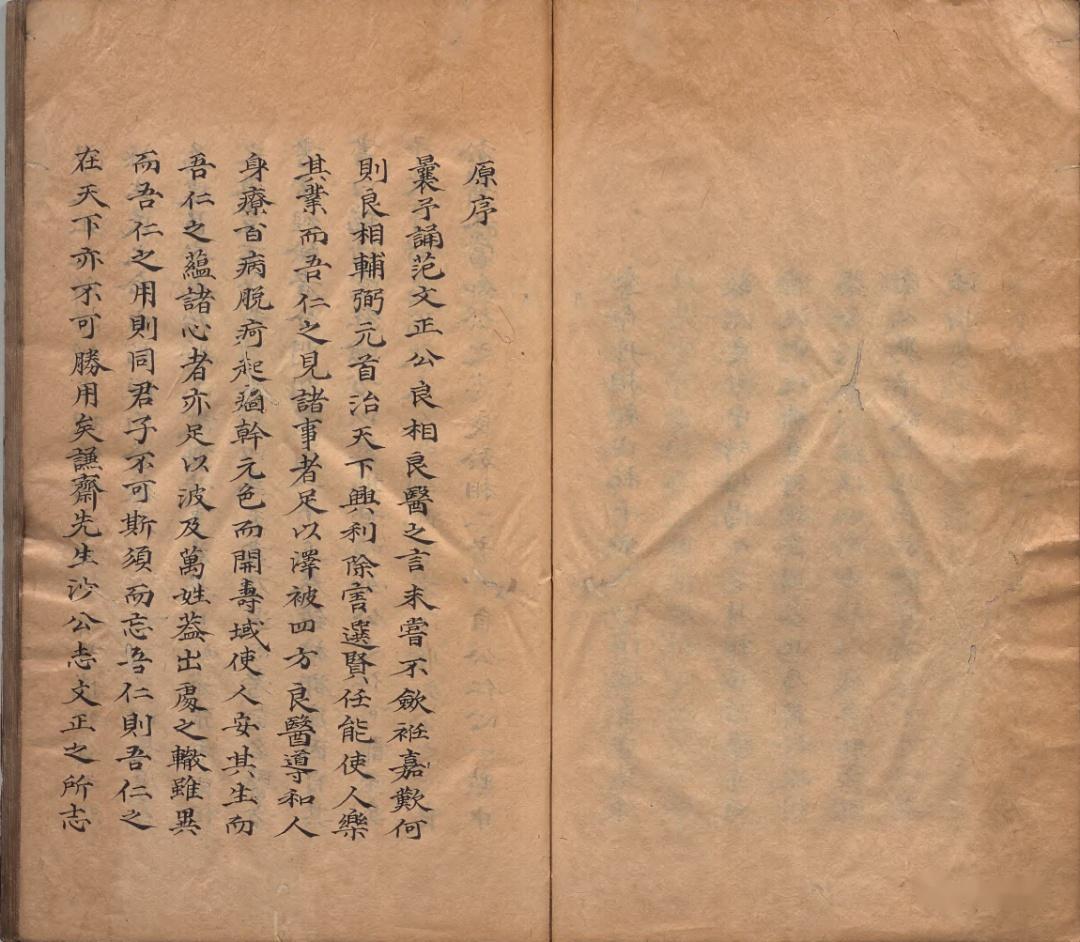 原序
曩予誦范文正公良相良醫之言未嘗不斂袵嘉歎何
則良相輔弼元首治天下興利除害選賢任能使人樂
其業而吾仁之見諸事者足以澤被四方良醫導和人
身療百病脱疴起痼幹元色而開壽域使人安其生而
吾仁之蘊諸心者亦足以波及萬姓葢出處之轍雖異
而吾仁之用則同君子不可斯須而忘吾仁則吾仁之
在天下亦不可勝用矣謙齋先生沙公志文正之所志